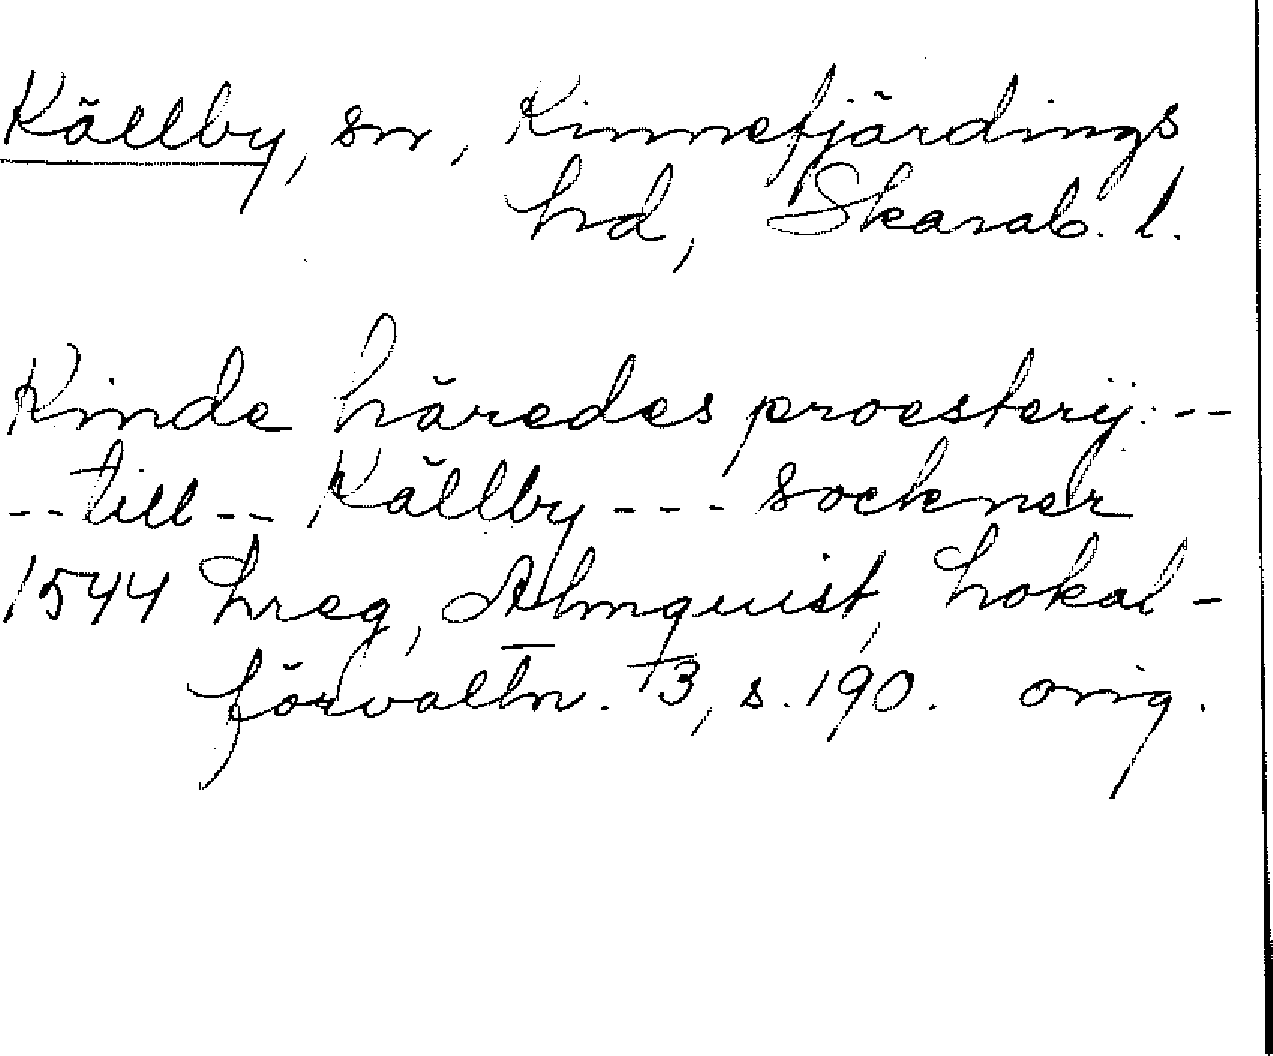 Källby, sn, Kinnefjärdings
hd, Skarab. l.
Kinde häredes proesterij: --
-- till -- Källby --- sockner
1544 hreg, Almquist, Lokal-
förvaltn. I 3, s. 190. orig.